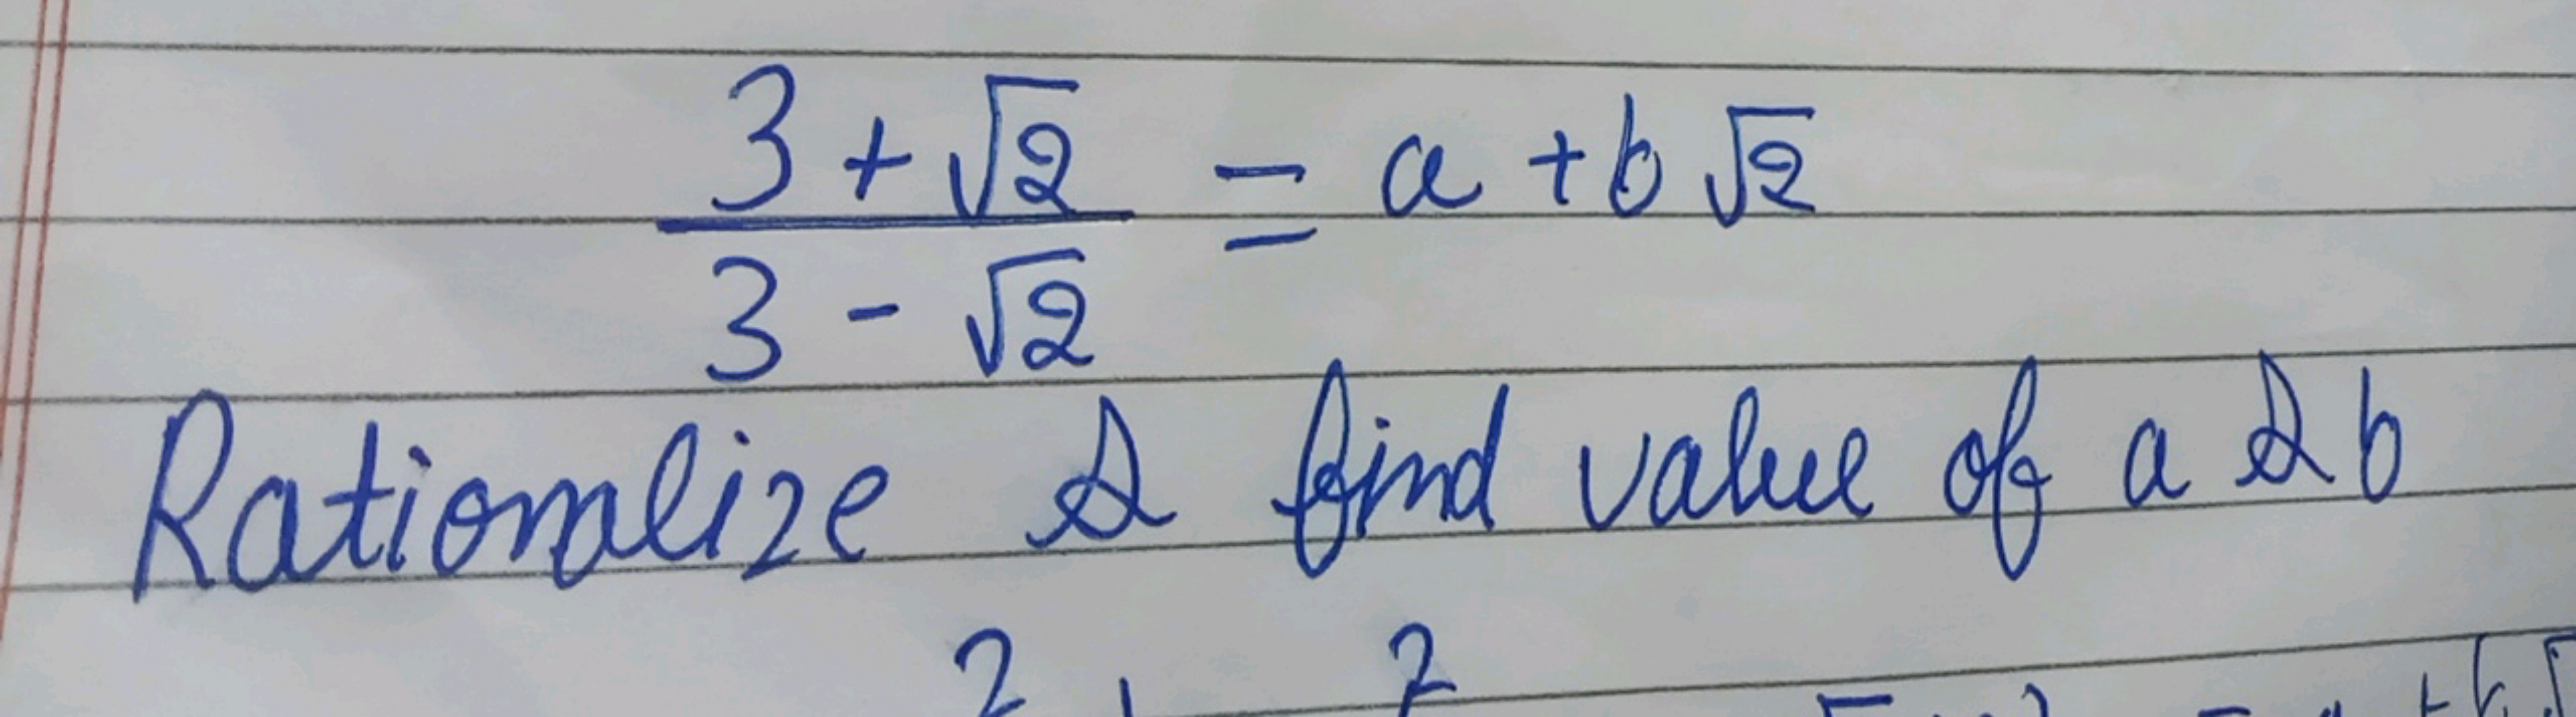 3 + √2 = a + b √2
3 - √2
Rationalize & find value of a & b
2 2